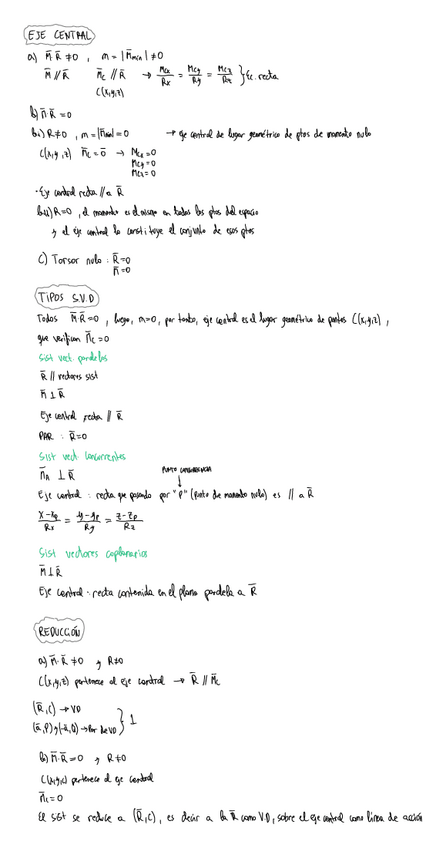 EJE CENTRAL
a) M̄·R̄ ≠ 0 , m = |M̄min| ≠ 0
M̄ // R̄ M̄c // R̄ → Mcx/Rx = Mcy/Ry = Mcz/Rz } Ec. recta
C(x,y,z)
b) M̄·R̄ = 0
b.i) R≠0 , m = |M̄min| = 0 → eje central de lugar geométrico de ptos de momento nulo
C(x,y,z) M̄c = 0̄ → Mcx = 0
Mcy = 0
Mcz = 0
· Eje central recta // a R̄
b.ii) R=0 , el momento es el mismo en todos los ptos del espacio
y el eje central lo constituye el conjunto de esos ptos
C) Torsor nulo : R̄=0
M̄=0
TIPOS S.V.D
Todos M̄·R̄ = 0 , luego, m=0, por tanto, eje central es el lugar geométrico de puntos C(x,y,z) ,
que verifican M̄c = 0
Sist vect. paralelos
R̄ // vectores sist
M̄ ⊥ R̄
Eje central recta // R̄
PAR : R̄=0
Sist vect. concurrentes
M̄A ⊥ R̄ PUNTO CONCURRENCIA
↓
Eje central : recta que pasando por "P" (punto de momento nulo) es // a R̄
x-xp/Rx = y-yp/Ry = z-zp/Rz
Sist vectores coplanarios
M̄ ⊥ R̄
Eje central · recta contenida en el plano paralela a R̄
REDUCCIÓN
a) M̄·R̄ ≠ 0 y R≠0
C(x,y,z) pertenece al eje central → R̄ // M̄c
(R̄,C) → VD
(ā,P) y (-ā,Q) → Par de VD } ⊥
b) M̄·R̄ = 0 y R≠0
C(x,y,z) pertenece al eje central
M̄c = 0
El sist se reduce a (R̄,C), es decir a la R̄ como V.D, sobre el eje central como línea de acción